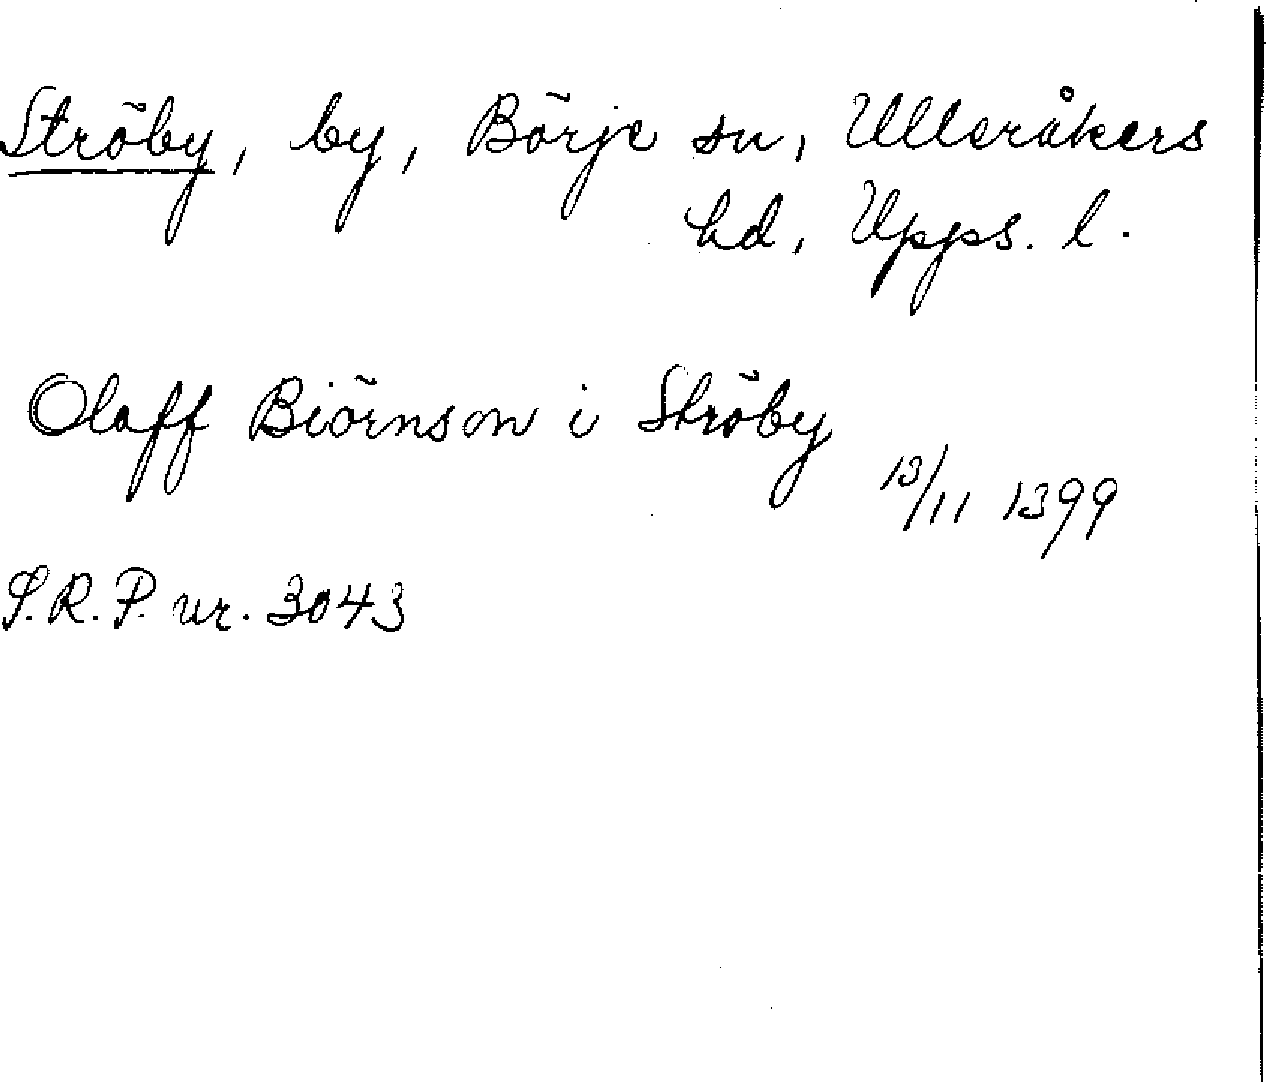 Ströby, by, Börje sn, Ulleråkers
hd, Upps. l.
Olaff Biörnson i Ströby
13/11 1399
S.R.P. nr. 3043